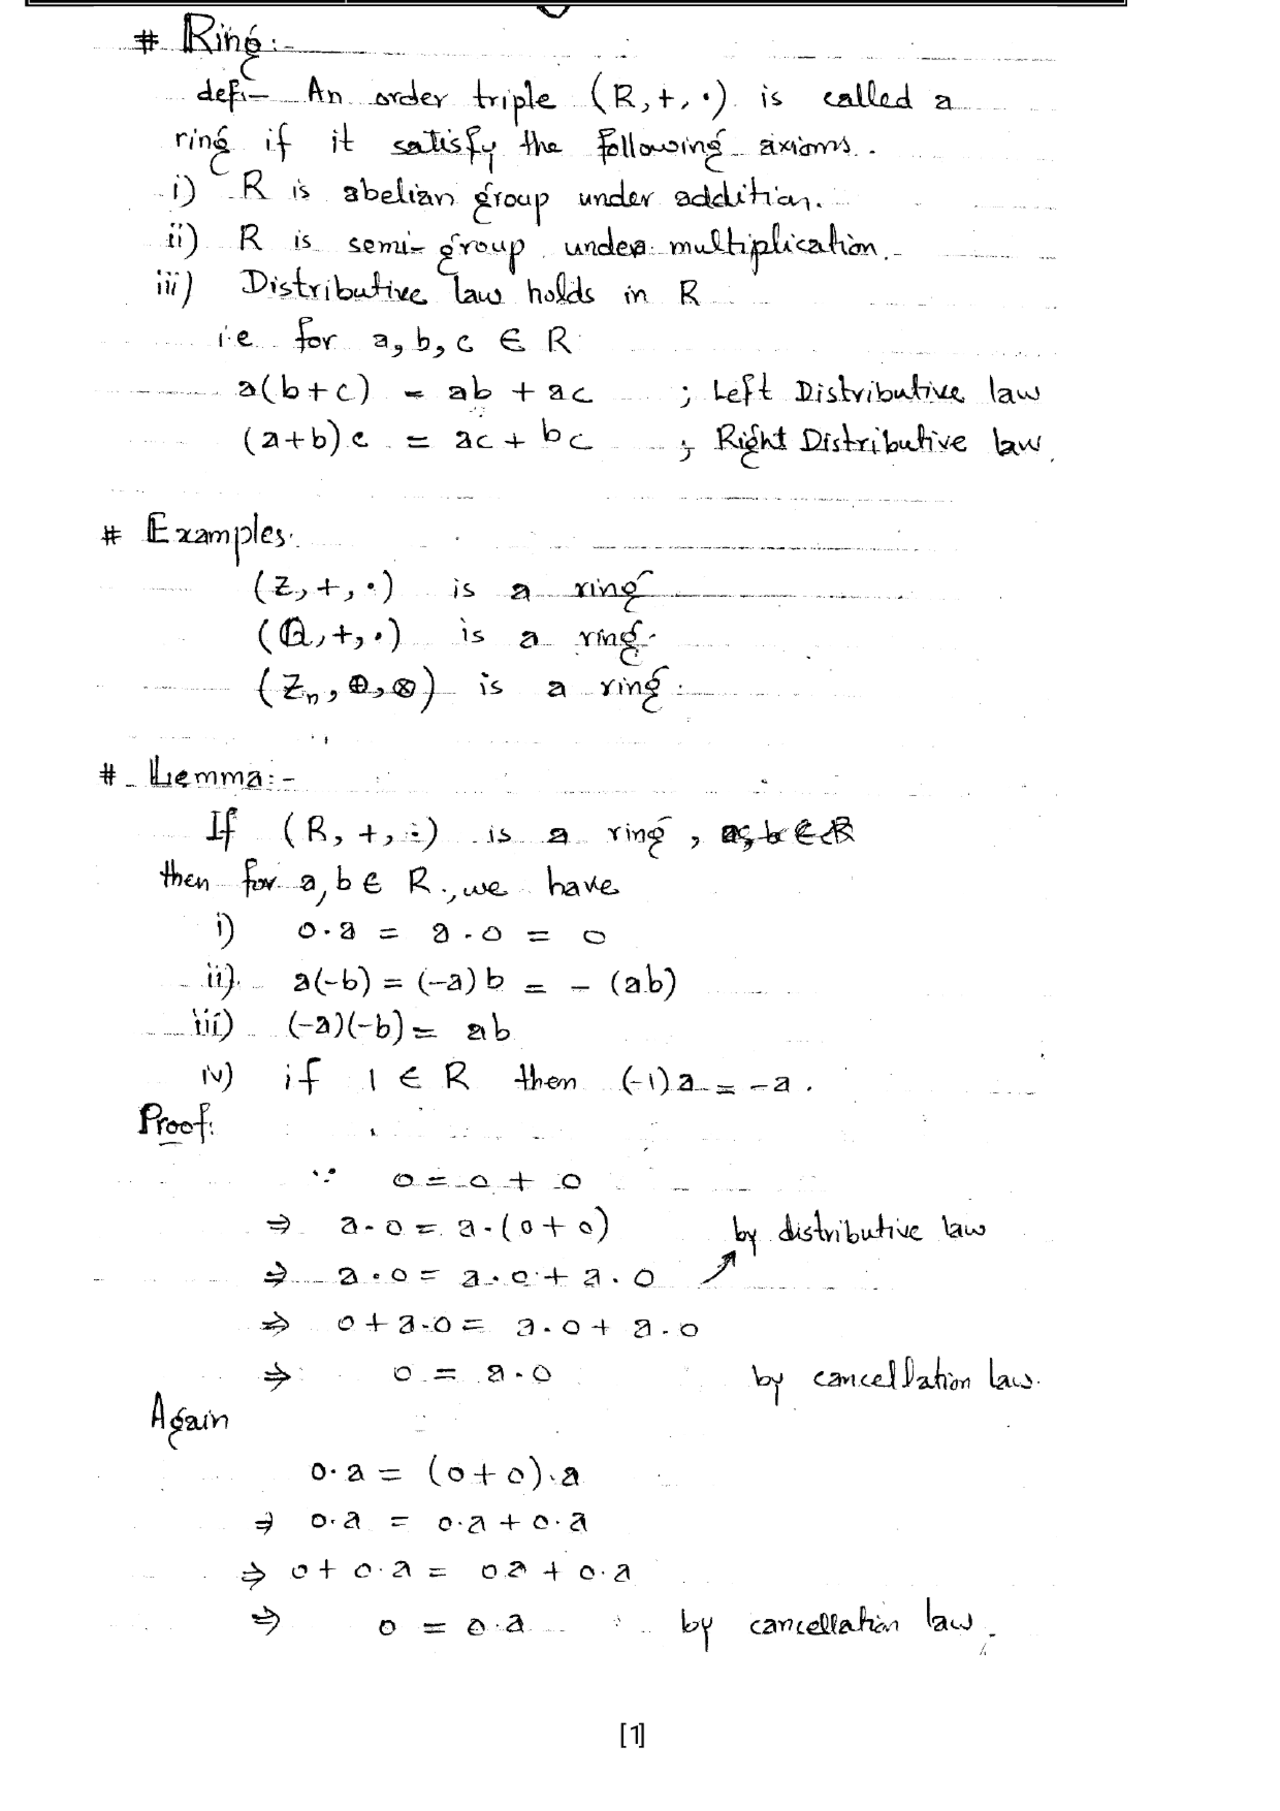 # Ring:-
def:- An order triple (R,+,·) is called a
ring if it satisfy the following axioms.
i) R is abelian group under addition.
ii) R is semi-group under multiplication.
iii) Distributive law holds in R
i.e for a, b, c ∈ R
a(b+c) = ab + ac ; Left Distributive law
(a+b)c = ac + bc ; Right Distributive law.
# Examples.
(Z,+,·) is a ring
(Q,+,·) is a ring.
(Zn, ⊕, ⊗) is a ring.
# Lemma:-
If (R, +, ·) is a ring,
then for a, b ∈ R, we have
i) 0·a = a·0 = 0
ii) a(-b) = (-a)b = -(ab)
iii) (-a)(-b) = ab
iv) if 1 ∈ R then (-1)a = -a.
Proof:
∵ 0 = 0 + 0
⇒ a·0 = a·(0+0) by distributive law
⇒ a·0 = a·0 + a·0
⇒ 0 + a·0 = a·0 + a·0
⇒ 0 = a·0 by cancellation law.
Again
0·a = (0+0)·a
⇒ 0·a = 0·a + 0·a
⇒ 0 + 0·a = 0a + 0·a
⇒ 0 = 0·a by cancellation law.
[1]